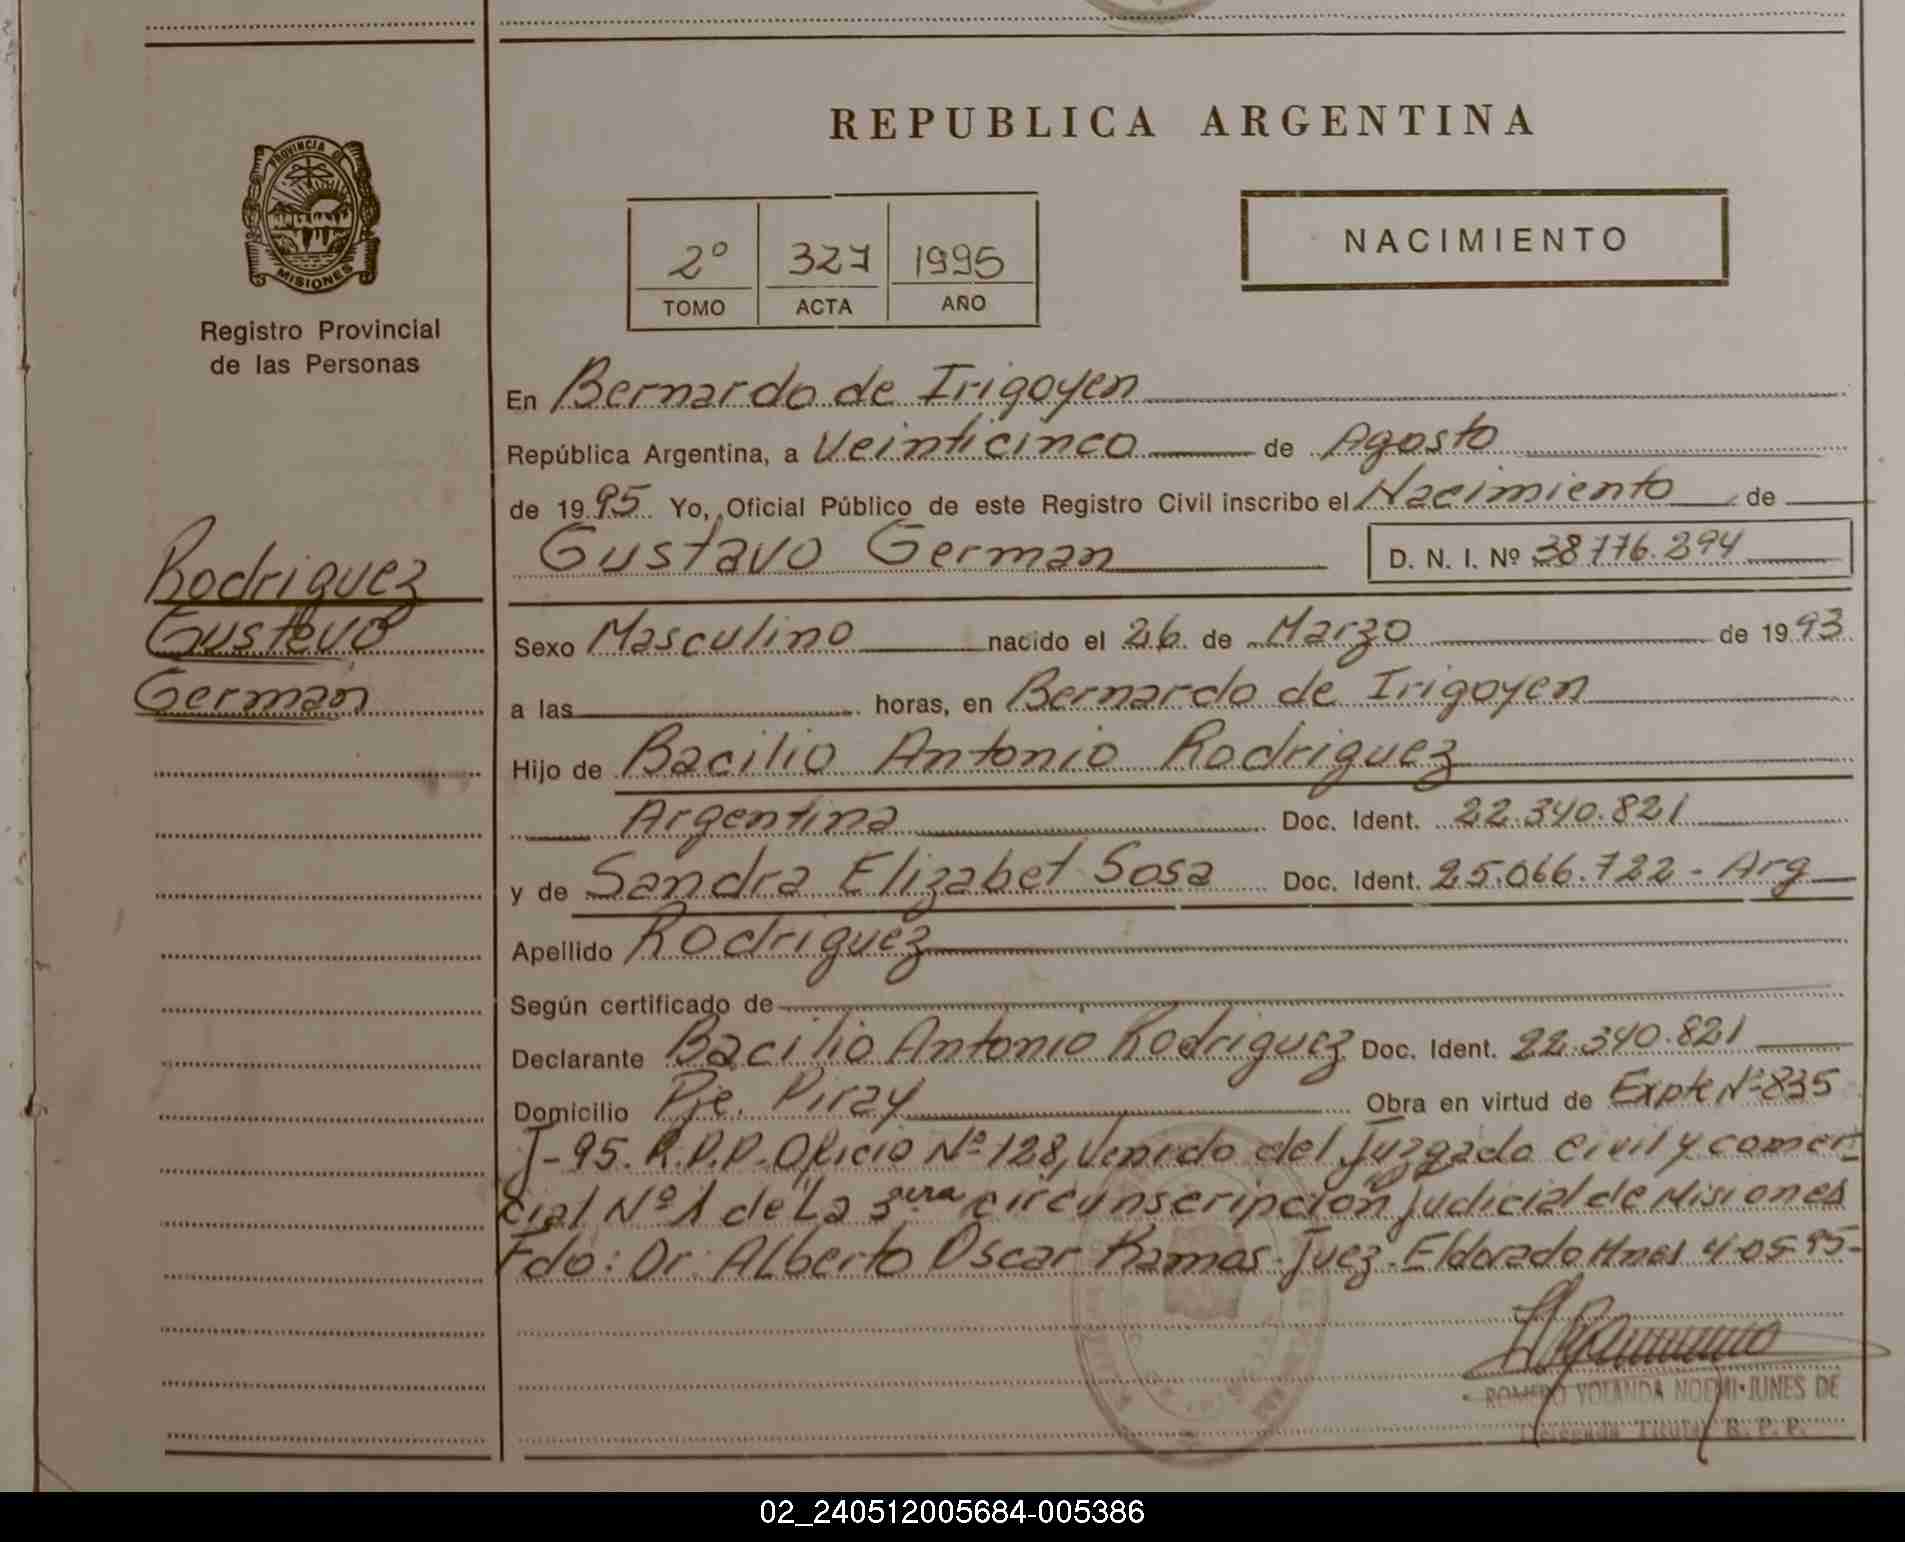 PROVINCIA DE
MISIONES
Registro Provincial
de las Personas
Rodriguez
Gustavo
German
REPUBLICA ARGENTINA
2º 327 1995
TOMO ACTA AÑO
NACIMIENTO
En Bernardo de Irigoyen
República Argentina, a Veinticinco de Agosto
de 1995 Yo, Oficial Público de este Registro Civil inscribo el Nacimiento de
Gustavo German D. N. I. Nº 38776.294
Sexo Masculino nacido el 26 de Marzo de 1993
a las horas, en Bernardo de Irigoyen
Hijo de Bacilio Antonio Rodriguez
Argentina Doc. Ident. 22.340.821
y de Sandra Elizabet Sosa Doc. Ident. 25.066.722 - Arg
Apellido Rodriguez
Según certificado de
Declarante Bacilio Antonio Rodriguez Doc. Ident. 22.340.821
Domicilio Pje. Piray Obra en virtud de Expte Nº 835
J-95. R.P.P. Oficio Nº 128, Venido del Juzgado Civil y comer-
cial Nº 1 de La 3era circunscripcion Judicial de Misiones
Fdo: Dr. Alberto Oscar Ramos - Juez - Eldorado Mnes 4-05-95-
ROMERO YOLANDA NOEMI JUNES DE
Delegada Titular R. P. P.
02_240512005684-005386